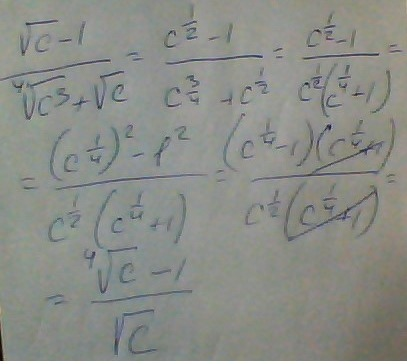 \frac{\sqrt{c}-1}{\sqrt[4]{c^3}+\sqrt{c}} = \frac{c^{\frac{1}{2}}-1}{c^{\frac{3}{4}}+c^{\frac{1}{2}}} = \frac{c^{\frac{1}{2}}-1}{c^{\frac{1}{2}}(c^{\frac{1}{4}}+1)} =
= \frac{(c^{\frac{1}{4}})^2-1^2}{c^{\frac{1}{2}}(c^{\frac{1}{4}}+1)} = \frac{(c^{\frac{1}{4}}-1)(c^{\frac{1}{4}}+1)}{c^{\frac{1}{2}}(c^{\frac{1}{4}}+1)} =
= \frac{\sqrt[4]{c}-1}{\sqrt{c}}